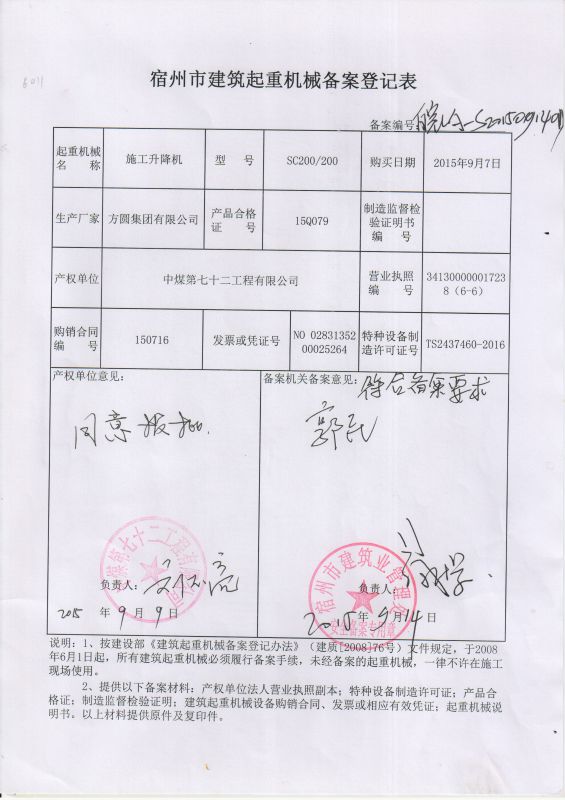 宿州市建筑起重机械备案登记表
备案编号:
起重机械名　称 施工升降机 型　号 SC200/200 购买日期 2015年9月7日
生产厂家 方圆集团有限公司 产品合格证　号 15Q079 制造监督检验证明书编　号
产权单位 中煤第七十二工程有限公司 营业执照编　号 341300000017238（6-6）
购销合同编　号 150716 发票或凭证号 NO 0283135200025264 特种设备制造许可证号 TS2437460-2016
产权单位意见： 备案机关备案意见：符合备案要求
同意报批.
负责人： 负责人：
2015 年 9 月 9 日 2015 年 9 月 14 日
宿州市建筑业管理
安全备案专用章
说明：1、按建设部《建筑起重机械备案登记办法》（建质[2008]76号）文件规定，于2008
年6月1日起，所有建筑起重机械必须履行备案手续，未经备案的起重机械，一律不许在施工
现场使用。
2、提供以下备案材料：产权单位法人营业执照副本；特种设备制造许可证；产品合
格证；制造监督检验证明；建筑起重机械设备购销合同、发票或相应有效凭证；起重机械说
明书。以上材料提供原件及复印件。